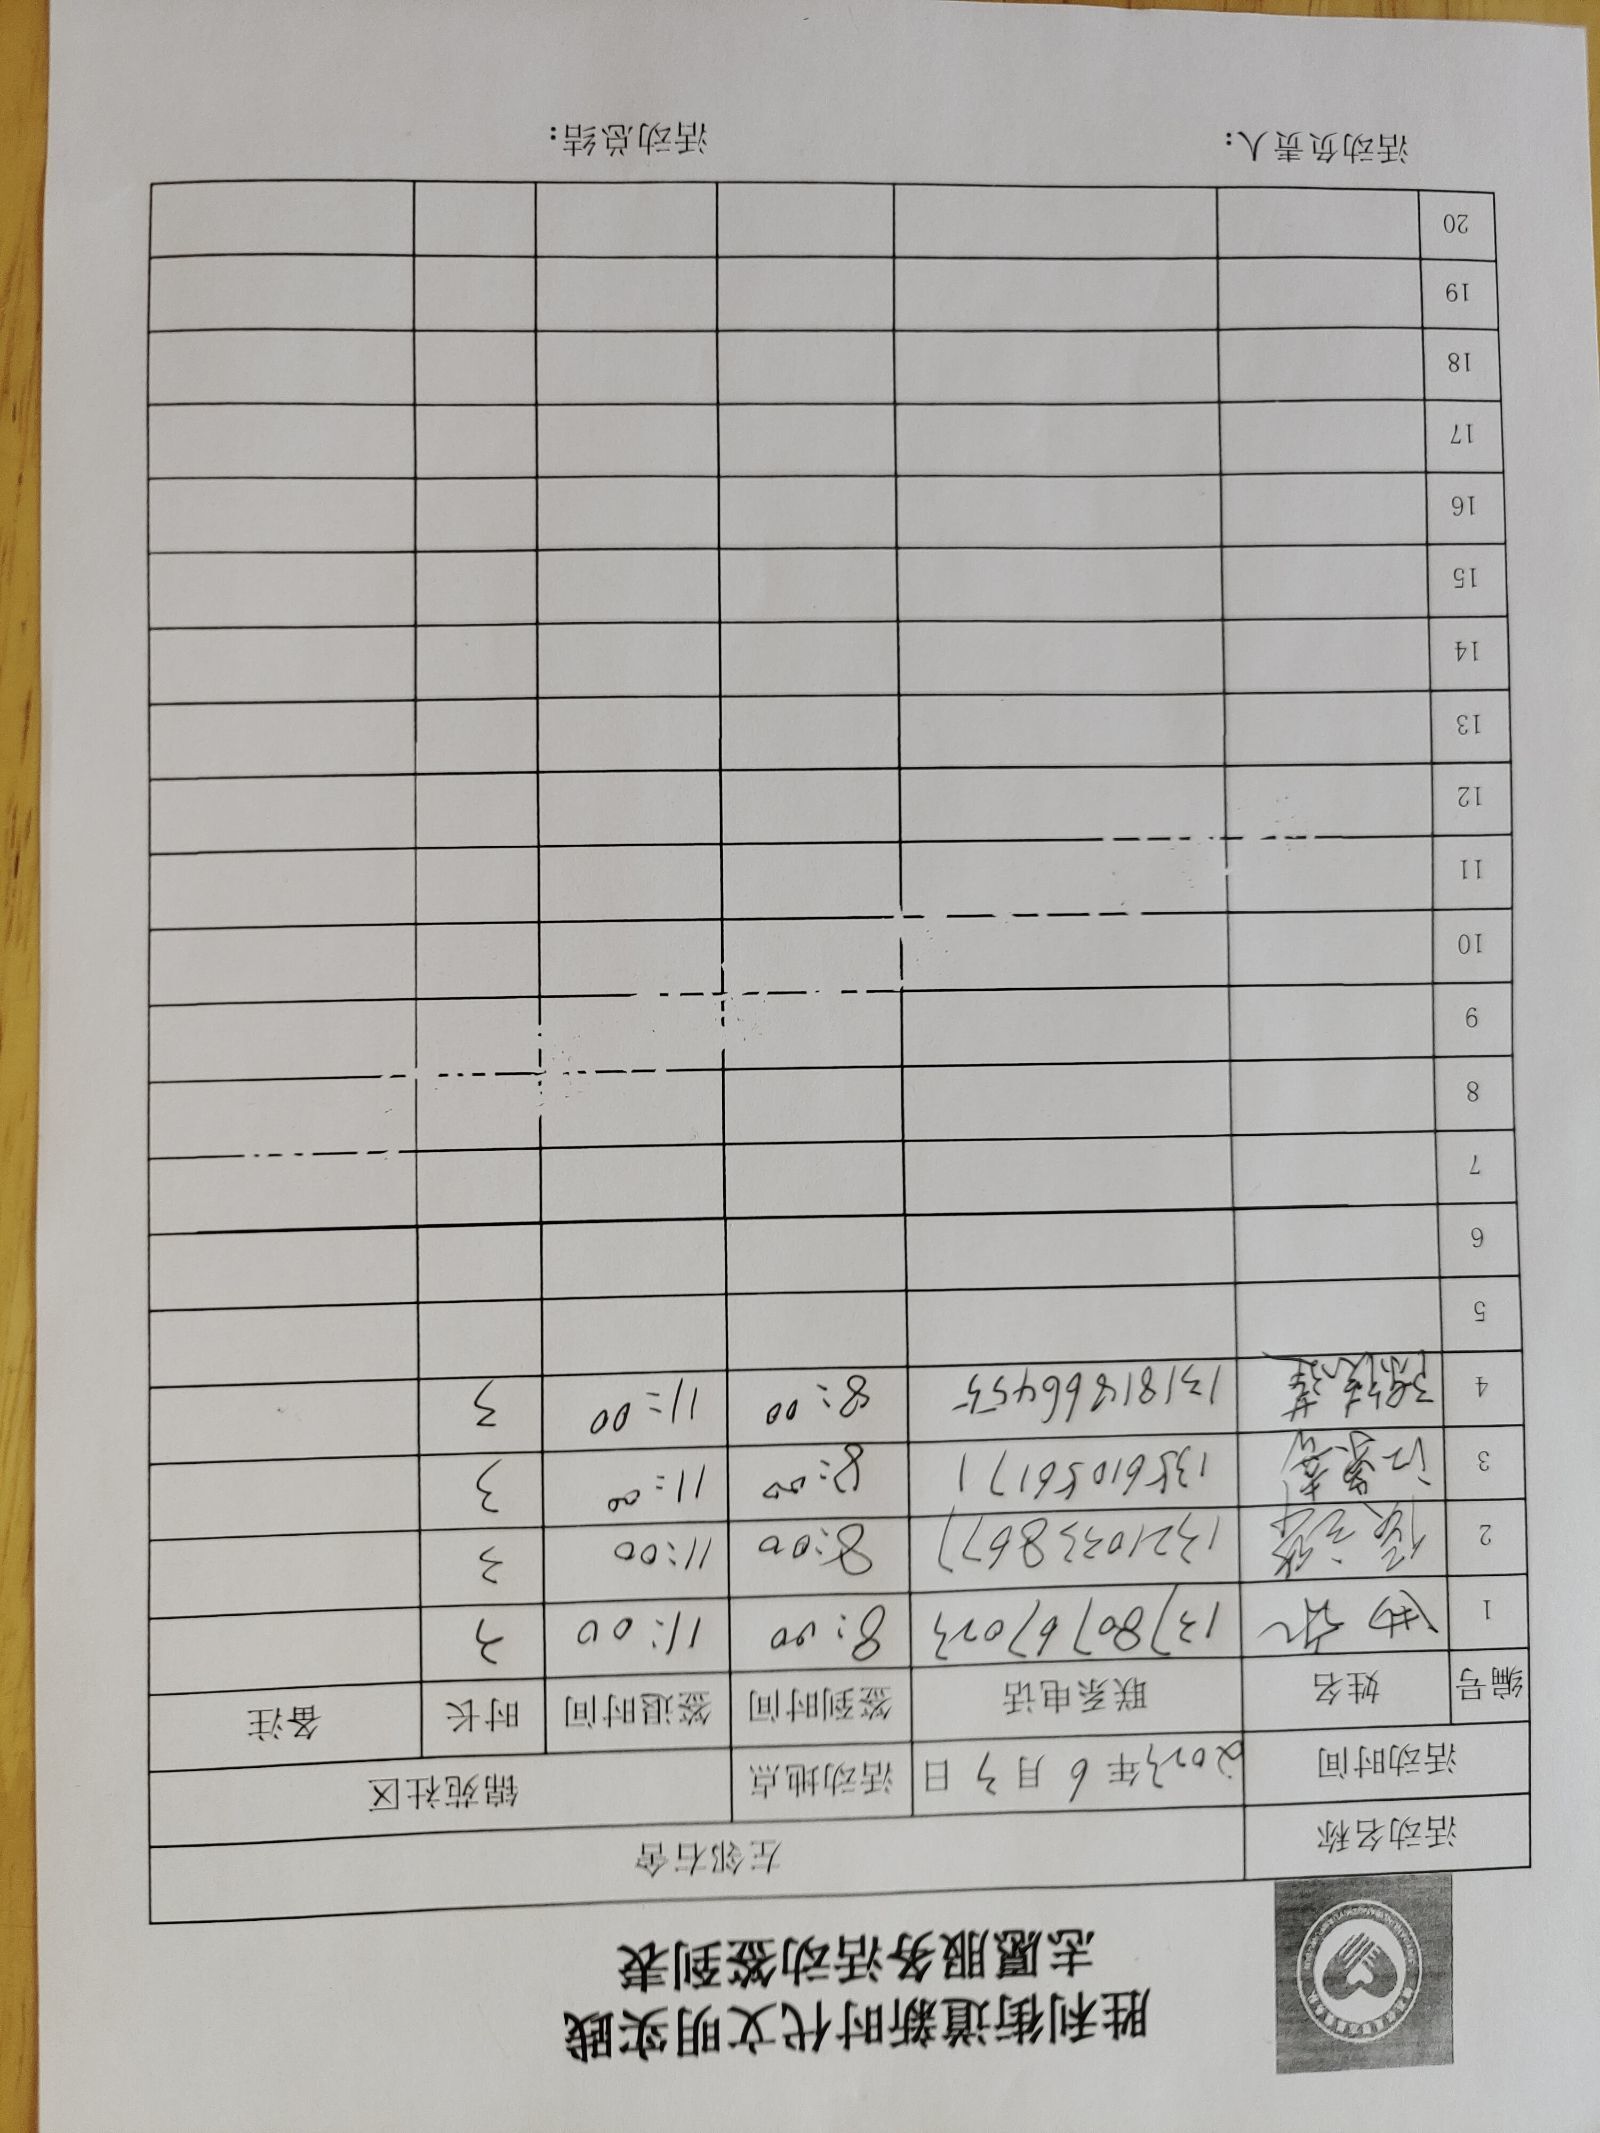 胜利街道新时代文明实践
志愿服务活动签到表
活动名称 左邻右舍
活动时间 2023年6月3日 活动地点 锦苑社区
编号 姓名 联系电话 签到时间 签退时间 时长 备注
1 13780767023 8:00 11:00 3
2 13210338677 8:00 11:00 3
3 13561056171 8:00 11:00 3
4 13181866455 8:00 11:00 3
5
6
7
8
9
10
11
12
13
14
15
16
17
18
19
20
活动负责人： 活动总结：